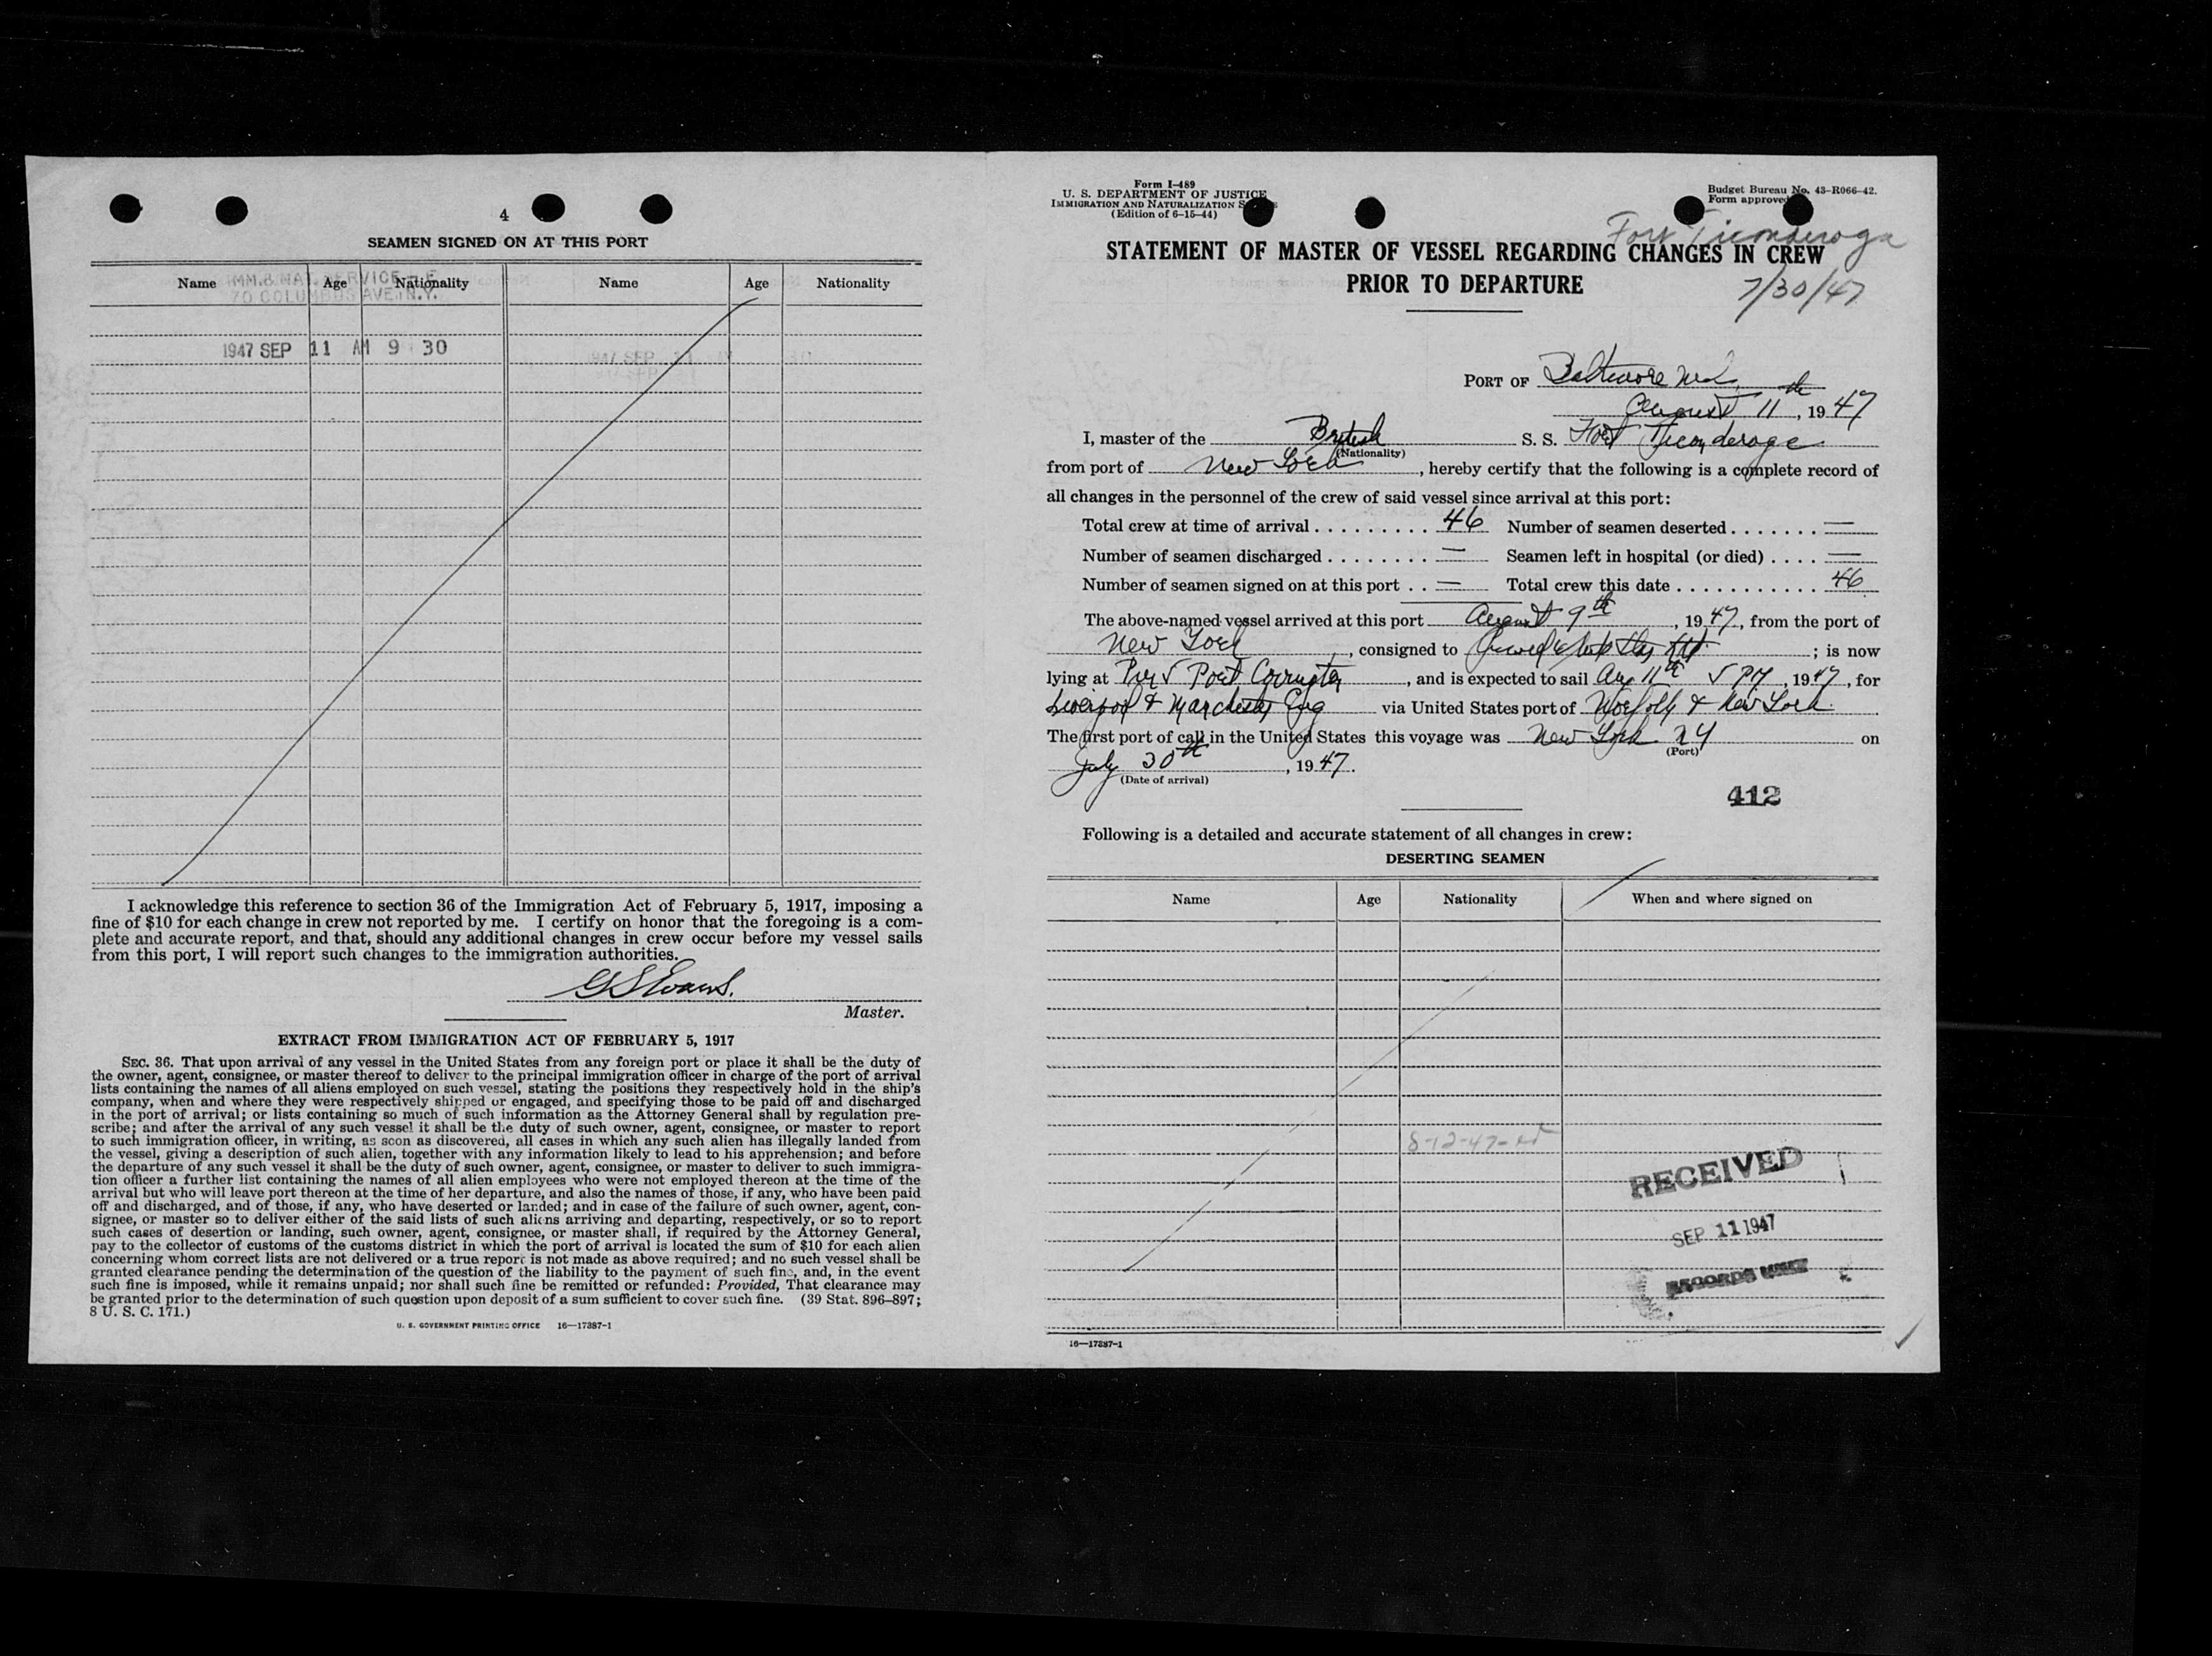 4
SEAMEN SIGNED ON AT THIS PORT
Name Age Nationality Name Age Nationality
IMM. & NAT. SERVICE
70 COLUMBUS AVE. N.Y.
1947 SEP 11 AM 9 30
I acknowledge this reference to section 36 of the Immigration Act of February 5, 1917, imposing a
fine of $10 for each change in crew not reported by me. I certify on honor that the foregoing is a com-
plete and accurate report, and that, should any additional changes in crew occur before my vessel sails
from this port, I will report such changes to the immigration authorities.
G S Evans.
Master.
EXTRACT FROM IMMIGRATION ACT OF FEBRUARY 5, 1917
SEC. 36. That upon arrival of any vessel in the United States from any foreign port or place it shall be the duty of
the owner, agent, consignee, or master thereof to deliver to the principal immigration officer in charge of the port of arrival
lists containing the names of all aliens employed on such vessel, stating the positions they respectively hold in the ship's
company, when and where they were respectively shipped or engaged, and specifying those to be paid off and discharged
in the port of arrival; or lists containing so much of such information as the Attorney General shall by regulation pre-
scribe; and after the arrival of any such vessel it shall be the duty of such owner, agent, consignee, or master to report
to such immigration officer, in writing, as soon as discovered, all cases in which any such alien has illegally landed from
the vessel, giving a description of such alien, together with any information likely to lead to his apprehension; and before
the departure of any such vessel it shall be the duty of such owner, agent, consignee, or master to deliver to such immigra-
tion officer a further list containing the names of all alien employees who were not employed thereon at the time of the
arrival but who will leave port thereon at the time of her departure, and also the names of those, if any, who have been paid
off and discharged, and of those, if any, who have deserted or landed; and in case of the failure of such owner, agent, con-
signee, or master so to deliver either of the said lists of such aliens arriving and departing, respectively, or so to report
such cases of desertion or landing, such owner, agent, consignee, or master shall, if required by the Attorney General,
pay to the collector of customs of the customs district in which the port of arrival is located the sum of $10 for each alien
concerning whom correct lists are not delivered or a true report is not made as above required; and no such vessel shall be
granted clearance pending the determination of the question of the liability to the payment of such fine, and, in the event
such fine is imposed, while it remains unpaid; nor shall such fine be remitted or refunded: Provided, That clearance may
be granted prior to the determination of such question upon deposit of a sum sufficient to cover such fine. (39 Stat. 896–897;
8 U. S. C. 171.)
U. S. GOVERNMENT PRINTING OFFICE 16—17387-1
Form I-489
U. S. DEPARTMENT OF JUSTICE
IMMIGRATION AND NATURALIZATION
(Edition of 6-15-44)
Budget Bureau No. 43-R066-42.
Form approved
Fort Ticonderoga
STATEMENT OF MASTER OF VESSEL REGARDING CHANGES IN CREW
PRIOR TO DEPARTURE
7/30/47
PORT OF Baltimore Md.
August 11th, 1947
I, master of the British S. S. Fort Ticonderoga
(Nationality)
from port of New York, hereby certify that the following is a complete record of
all changes in the personnel of the crew of said vessel since arrival at this port:
Total crew at time of arrival 46 Number of seamen deserted —
Number of seamen discharged — Seamen left in hospital (or died) —
Number of seamen signed on at this port — Total crew this date 46
The above-named vessel arrived at this port August 9th, 1947, from the port of
New York, consigned to ; is now
lying at Pier 5 Port Covington, and is expected to sail Aug 11th 5 PM, 1947, for
Liverpool & Manchester Eng via United States port of Norfolk & New York.
The first port of call in the United States this voyage was New York NY on
(Port)
July 30th, 1947.
(Date of arrival)
412
Following is a detailed and accurate statement of all changes in crew:
DESERTING SEAMEN
Name Age Nationality When and where signed on
8-12-47
RECEIVED
SEP 11 1947
RECORDS UNIT
16—17387-1